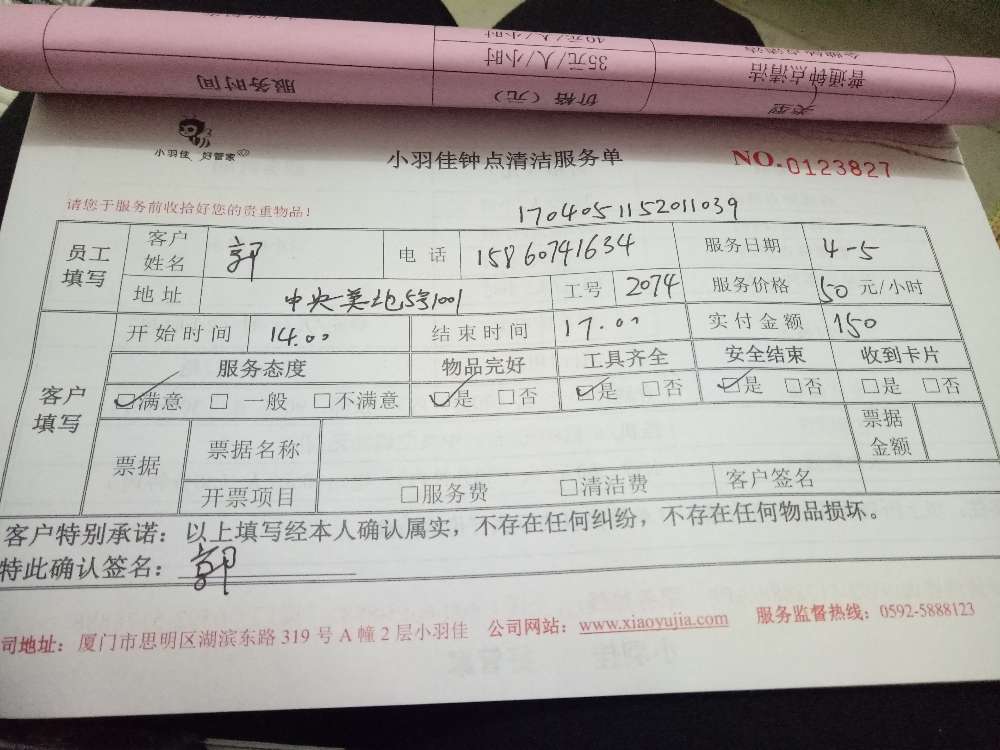 10元/人/小时
普通钟点清洁 35元/人/小时
类型 价格（元） 服务时间
小羽佳 好管家
小羽佳钟点清洁服务单
NO.0123827
请您于服务前收拾好您的贵重物品！
1704051152011039
员工填写 客户姓名 郭 电话 15860741634 服务日期 4-5
地址 中央美地5号1001 工号 2074 服务价格 50元/小时
客户填写 开始时间 14.00 结束时间 17.00 实付金额 150
服务态度 物品完好 工具齐全 安全结束 收到卡片
☑满意 □ 一般 □不满意 ☑是 □否 ☑是 □否 ☑是 □否 □是 □否
票据 票据名称 票据金额
开票项目 □服务费 □清洁费 客户签名
客户特别承诺：以上填写经本人确认属实，不存在任何纠纷，不存在任何物品损坏。
特此确认签名：郭
司地址：厦门市思明区湖滨东路 319 号 A 幢 2 层小羽佳 公司网站：www.xiaoyujia.com 服务监督热线：0592-5888123